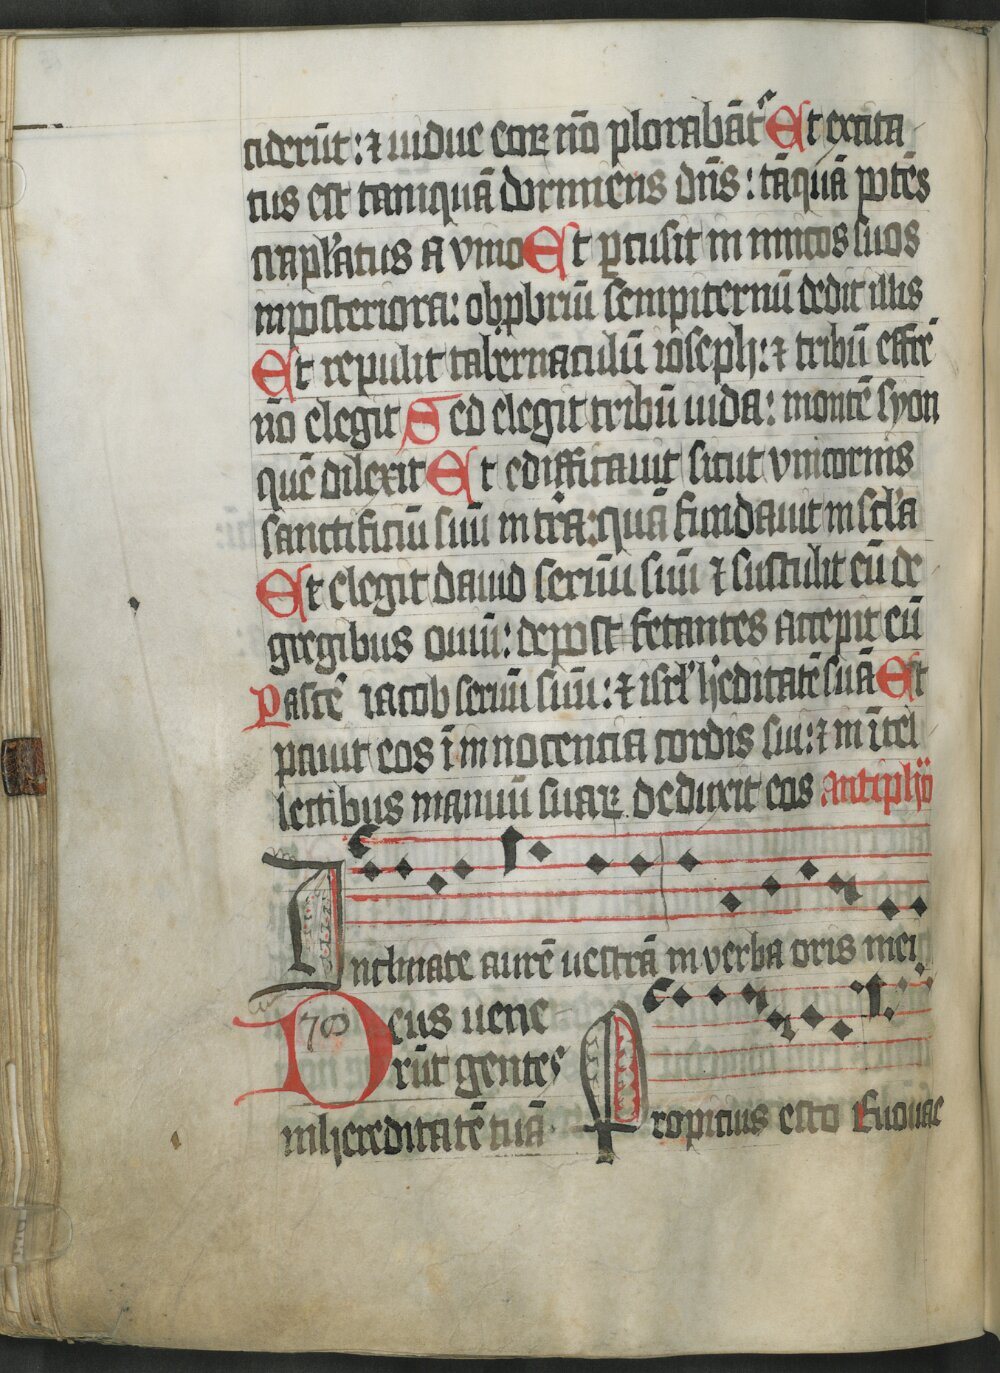 ciderūt: ⁊ uidue eoꝝ nō plorabāt᷒ Et excita
tus est tamquā dormiens dn̄s: tāquā potēs
crapl̓atus a vino Et ꝑcusit inimicos suos
in posteriora: obꝓbriū sempiternū dedit illis
Et repulit tabernaculū ioseph: ⁊ tribū effrē
nō elegit Sed elegit tribū iuda: montē syon
quē dilexit Et edifficauit sicut vnicornis
sanctificiū suū in tr̄a: quā fundauit in sc̄la
Et elegit dauid seruū suū ⁊ sustulit eū de
gregibus ouiū: de post fetantes accepit eū
Pascē iacob seruū suū: ⁊ isrl̓ h̓editatē suā Et
pauit eos ī innocencia cordis sui: ⁊ in ītel
lectibus manuū suaꝝ deduxit eos antipho
Inclinate aurē uestrā in verba oris mei
Deus uene
rūt gentes
in hereditatē tuā
Propicius esto Euouae